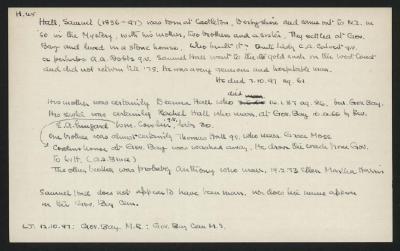 H.45
Hall, Samuel (1836-97) was born at Castleton, Derbyshire and came out to N.Z. in
'50 in the Mystery, with his mother, two brothers and a sister. They settled at Gov.
Bay and lived in a stone house. Who built it? Aunt Lady C.A. Calvert q.v.
or perhaps A.A. Dobbs q.v. Samuel Hall went to the gold rush on the West Coast
and did not return till '75. He was a very generous and hospitable man.
He died 3.10.97 ag. 61
died
His mother was certainly Deanna Hall who 14.1.87 ag. 86. bur. Gov. Bay.
His sister was certainly Rachel Hall who marr. at Gov. Bay 10.10.60 by Rev.
One brother was almost certainly Thomas Hall q.v. who marr. Grace Moss
house at Gov. Bay was washed away. He drove the coach from Gov.
The other brother was probably Anthony who marr. 19.2.73 Ellen Martha Harris
Samuel Hall does not appear to have been marr. nor does his name appear
in the Gov. Bay Cem.
LT. 12.10.97: Gov. Bay. M.R.: Gov. Bay Cem M.I.